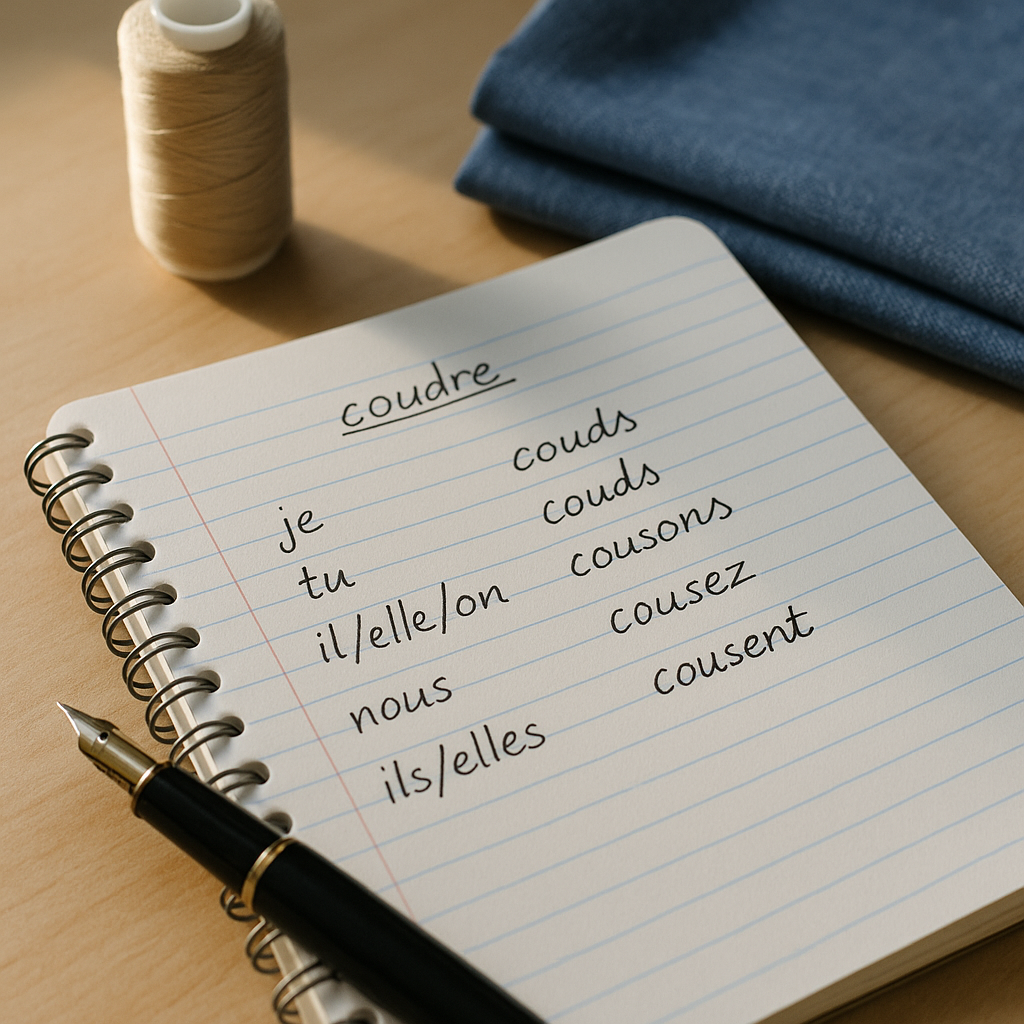 coudre
je couds
tu couds
il/elle/on cousons
nous cousez
ils/elles cousent